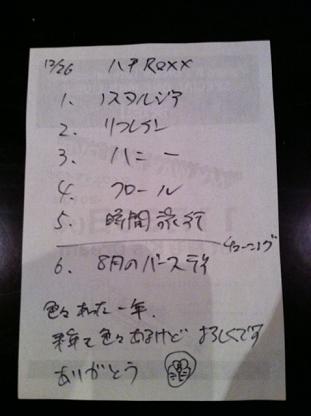 12/26 ハチRexx
1. ノスタルジア
2. リフレイン
3. ハニー
4. フロール
5. 時間旅行
チューニング
6. 8月のバースデイ
色々あった一年、
来年も色々あるけど よろしくです
ありがとう